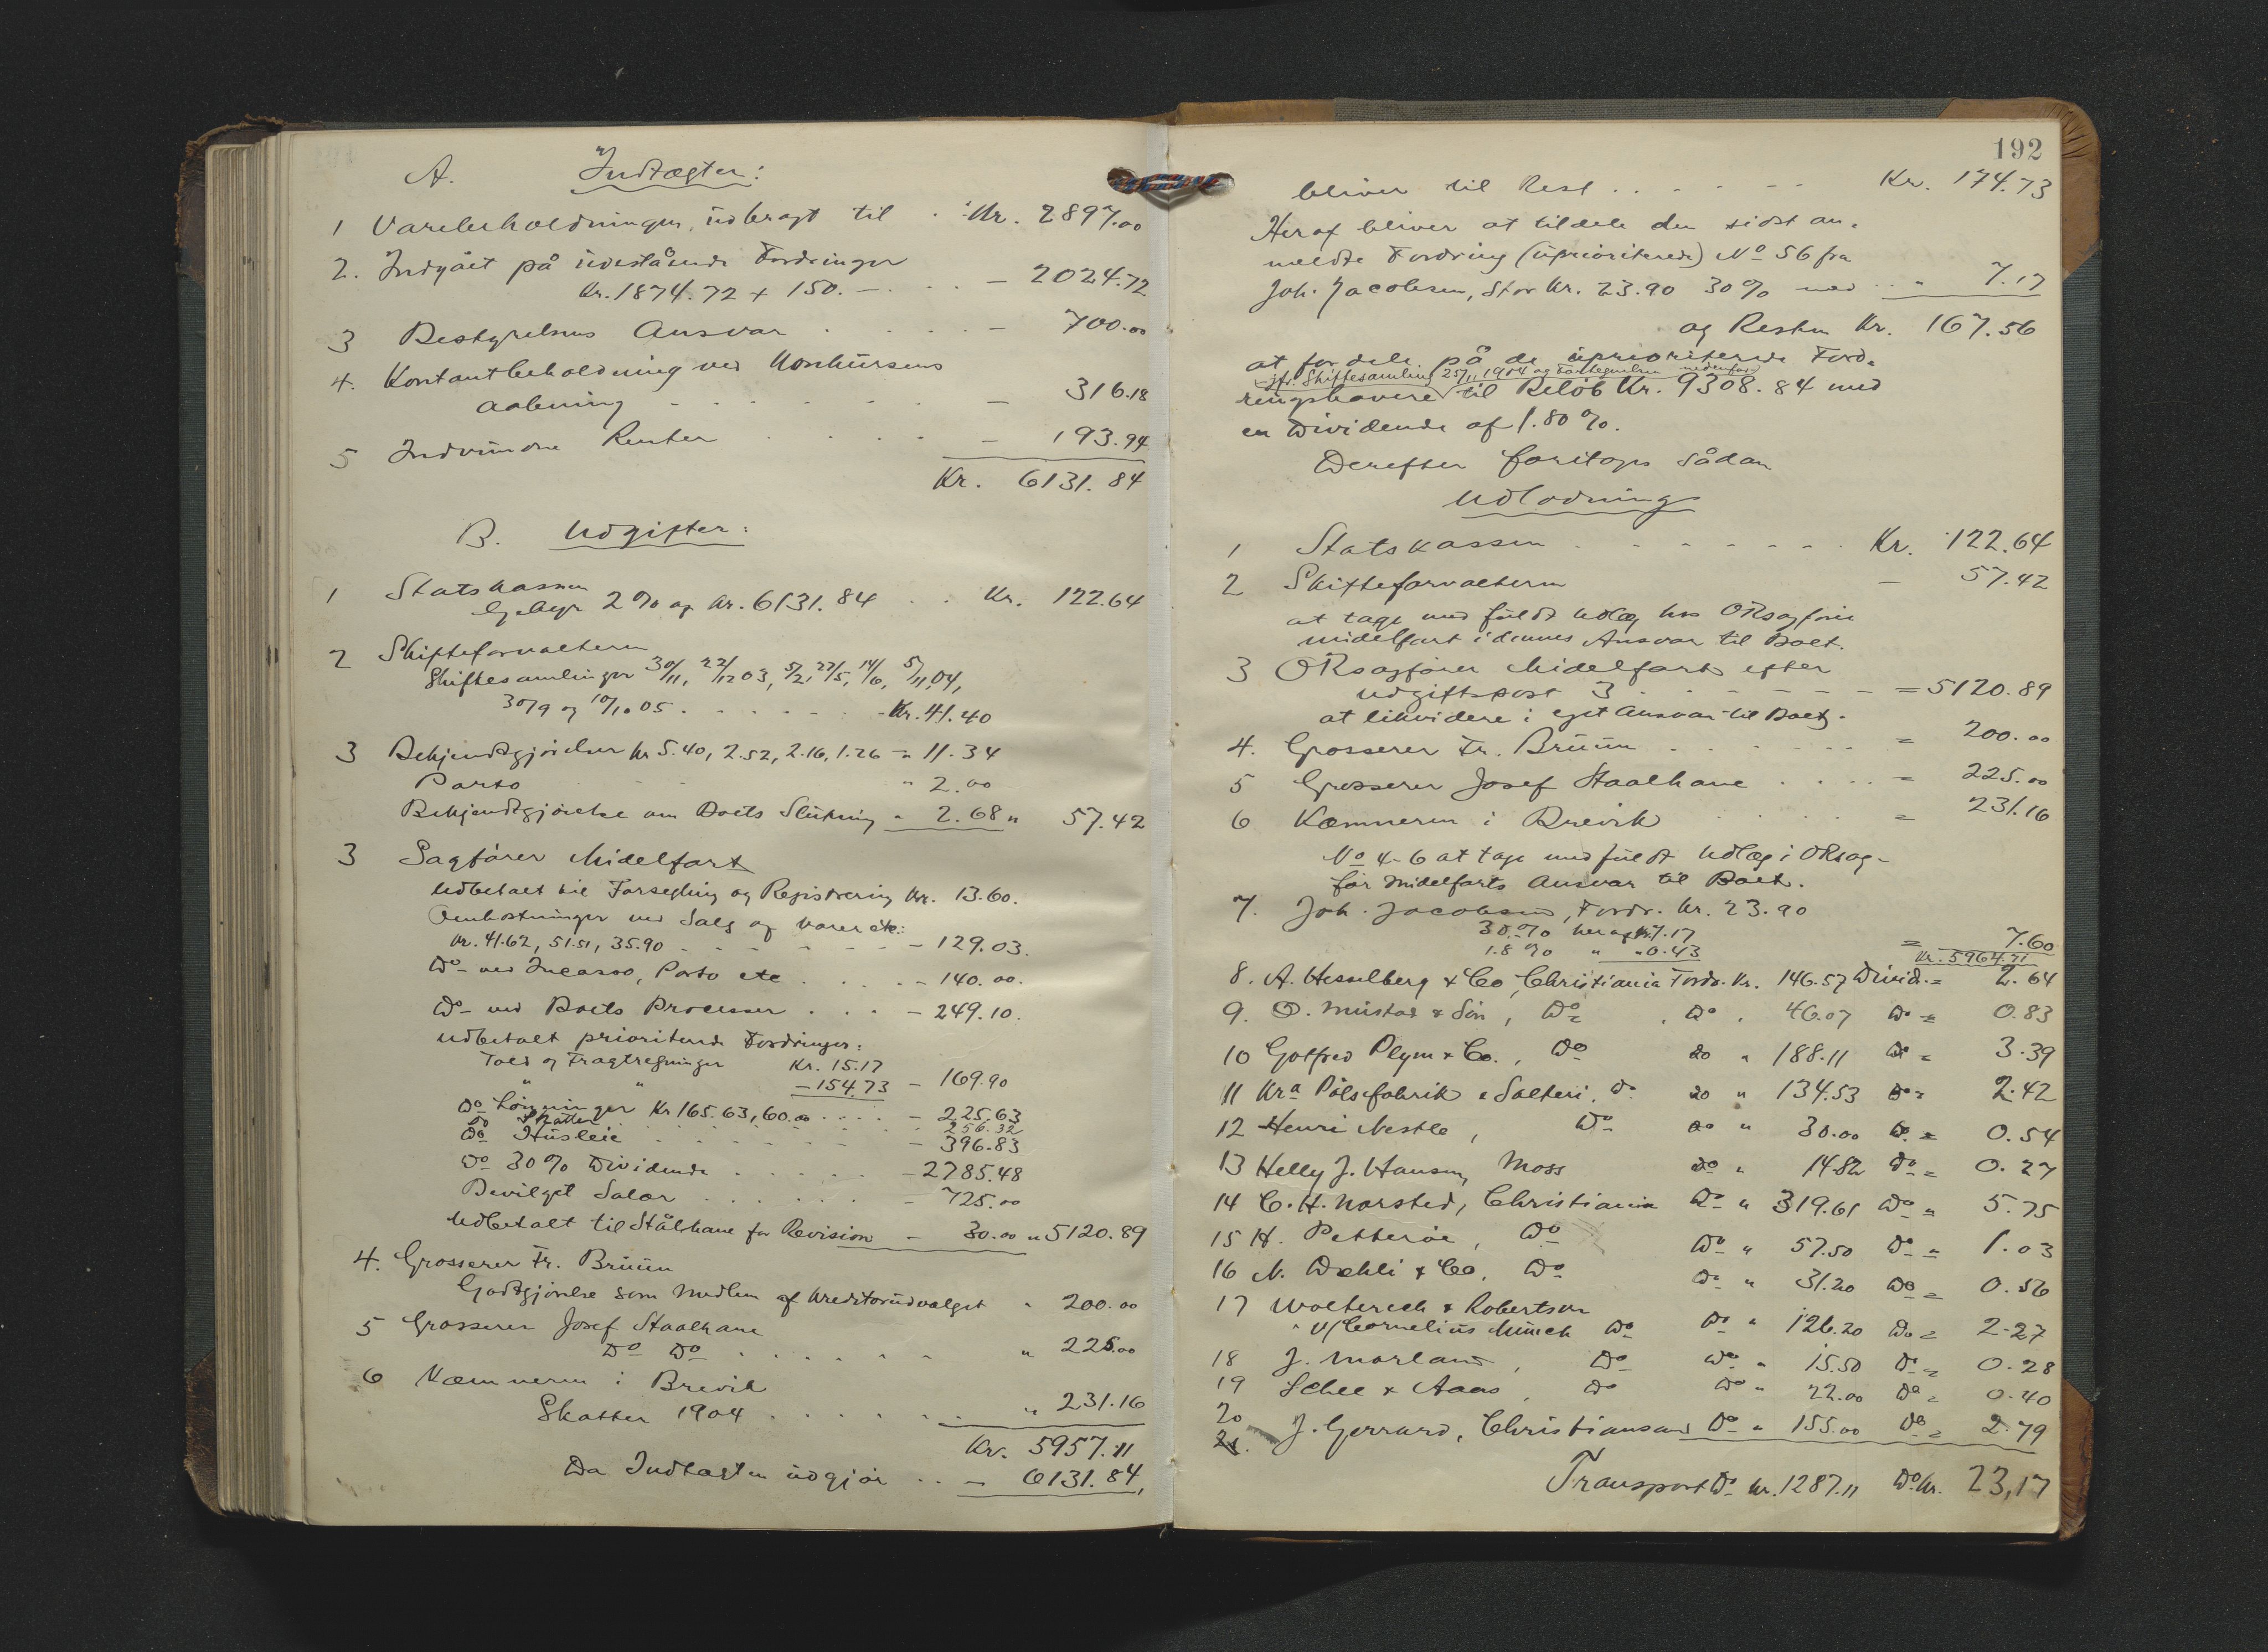 A. Indtægter:
1 Varebeholdningen, udbragt til . . Kr. 2897.00
2. Indgået på udestående Fordringer
Kr. 1874.72 + 150. — . . . — 2024.72
3 Bestyrelsens Ansvar . . . . — 700.00
4. Kontantbeholdning ved Konkursens
aabning - - - - - - — 316.18
5 Indvundne Renter . . . . — 193.94
Kr. 6131.84
B. Udgifter:
1 Statskassen
Gebyr 2 % af Kr. 6131.84 . . Kr. 122.64
2 Skifteforvalteren
Skiftesamlinger 30/11, 22/12 03, 5/2, 27/5, 14/6, 5/11 04,
30/9 og 10/10 05 . . . . . . - Kr. 41.40
3 Bekjendtgjörelser Kr 5.40, 2.52, 2.16, 1.26 - " 11.34
Porto - - - " 2.00
Bekjendtgjörelse om Boets Slutning " 2.68 " 57.42
3 Sagförer Midelfart
Udbetalt til Forsegling og Registrering Kr. 13.60.
Omkostninger ved Salg af Varer etc:
Kr. 41.62, 51.51, 35.90 - - - - - - - 129.03.
Do - ved Incasso, Porto etc . . . . - 140.00.
Do - ved Boets Processer . . . - 249.10.
Udbetalt prioriterede Fordringer:
Told og Fragtregninger Kr. 15.17
" " - 154.73 - 169.90
Do Lönninger Kr 165.63, 60.00 . . . . - 225.63
Do Skatter . . . . . . - 256.32
Do Husleie - - - - - - - 396.83
Do 30 % Dividende . . . . . - 2785.48
Bevilget Salær . . . . . . - 725.00
Udbetalt til Stålhane for Revision - 30.00 " 5120.89
4. Grosserer Fr. Bruun
Godtgjörelse som Medlem af Kreditorudvalget " 200.00
5 Grosserer Josef Staalhane
Do Do . . . . . . " 225.00
6 Kæmneren i Brevik
Skatter 1904 . . . . . . " 231.16
Kr. 5957.11
Da Indtægten udgjör . . — 6131.84,
192
bliver til Rest . . - - - - Kr. 174.73
Heraf bliver at tildele den sidst an-
meldte Fordring (uprioriterede) No 56 fra
Joh. Jacobsen, stor Kr. 23.90 30 % med . . " 7.17
og Resten Kr. 167.56
at fordele på de uprioriterede Ford-
jfr. Skiftesamling 25/11 1904 og Fortegnelsen nedenfor
ringshavere til Belöb Kr. 9308.84 med
en Dividende af 1.80 %.
Derefter foretages sådan
Udlodning
1 Statskassen . - - - - - - . Kr. 122.64
2 Skifteforvalteren — 57.42
at tage med fuldt Udlæg hos ORsagförer
Midelfart i dennes Ansvar til Boet.
3 ORsagförer Midelfart efter
Udgiftspost 3 - - - - - - - = 5120.89
at likvidere i eget Ansvar til Boet.
4. Grosserer Fr. Bruun - - - - - = 200.00
5 Grosserer Josef Staalhane . . . . = 225.00
6 Kæmneren i Brevik . . . . = 231.16
No 4-6 at tage med fuldt Udlæg i ORsag-
för Midelfarts Ansvar til Boet.
7. Joh. Jacobsen, Fordr. Kr. 23.90
30 % heraf Kr. 7.17
1.8 % " " 0.43 = 7.60
Kr. 5964.71
8. A. Hesselberg & Co, Christiania Fordr. Kr. 146.57 Divid. = 2.64
9. O. Mustad & Sön, Do , Do , 46.07 Do = 0.83
10 Gotfred Plym & Co., Do do " 188.11 Do = 3.39
11 Kra Pölsefabrik & Salteri, Do do " 134.53 Do = 2.42
12 Henri Nestle, Do do " 30.00 Do = 0.54
13 Helly J. Hansen, Moss do " 14.82 Do = 0.27
14 C. H. Norsted, Christiania Do " 319.61 Do = 5.75
15 H. Petteröe, Do Do " 57.50 Do = 1.03
16 N. Dæhli & Co, Do Do " 31.20 Do = 0.56
17 Wolterech & Robertson
v/ Cornelius Munch Do Do " 126.20 Do = 2.27
18 J. Morland, Do Do " 15.50 Do = 0.28
19 Schee & Aaas, Do Do " 22.00 Do = 0.40
20 J. Gerrard, Christiansand Do " 155.00 Do = 2.79
21.
Transport Do Kr. 1287.11 Do Kr. 23,17